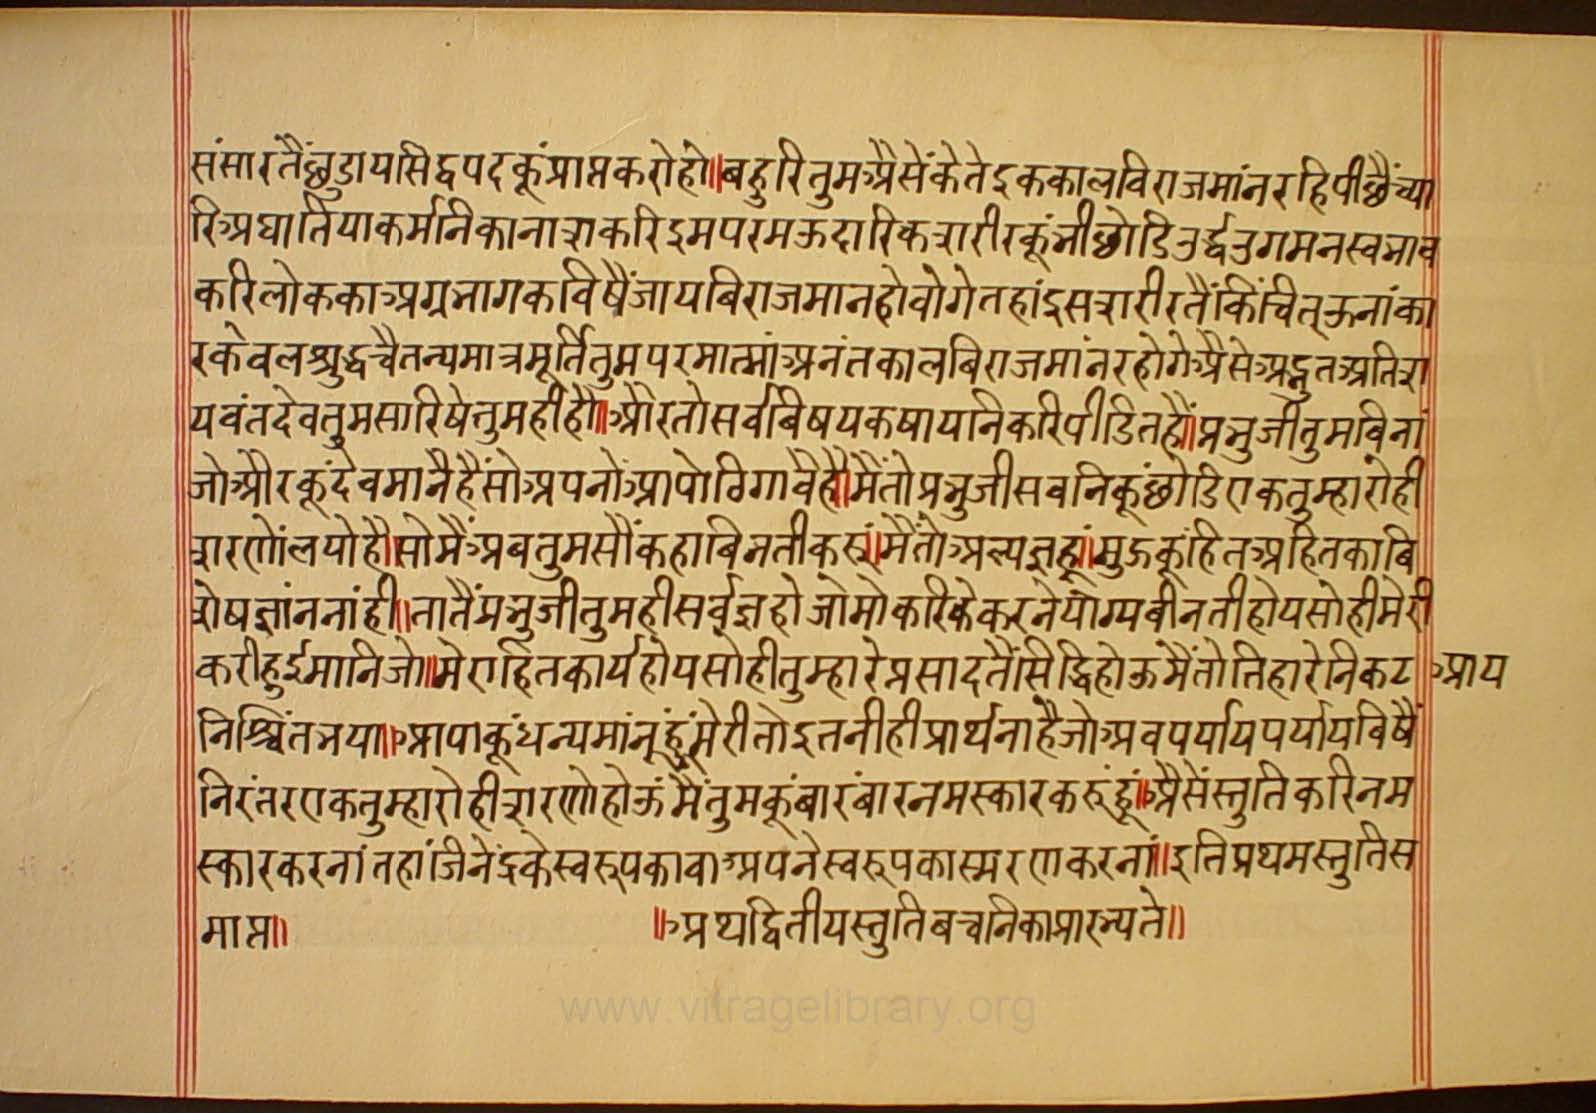 संसारतैंछुडायसिद्धपदकूंप्राप्तकरोहो॥बहुरितुमअैसेंकेतेइककालविराजमांनरहिपीछैंच्या
रिअघातियाकर्मनिकानाशकरिइमपरमऊदारिकशरीरकूंभीछोडिउर्द्धउगमनस्वभाव
करिलोककाअग्रभागकविषैंजायबिराजमानहोवोगेतहांइसशरीरतैंकिंचित्ऊनांका
रकेवलश्रुद्धचैतन्यमात्रमूर्तितुमपरमात्मांअनंतकालबिराजमांनरहोगेअैसेअद्भुतअतिश
यवंतदेवतुमसारिषेतुमहीहौ॥औरतोसर्वबिषयकषायनिकरिपीडितहैं॥प्रभुजीतुमबिनां
जोऔरकूंदेवमानैहैंसोअपनोंआपोठिगावैहै॥मैंतोप्रभुजीसबनिकूंछोडिएकतुम्हारोही
शरणोंलयोहै॥सोमैंअबतुमसौंकहाबिनतीकरूं॥मैंतोअल्पज्ञहूं॥मुझकूंहितअहितकाबि
शेषज्ञांननांही॥तातैंप्रभुजीतुमहीसर्वज्ञहोजोमोकरिकेकरनेयोग्यबीनतीहोयसोहीमेरी
करीहुईमानिजो॥मेराहितकार्यहोयसोहीतुम्हारेप्रसादतैंसिद्धिहोऊमैंतोतिहारेनिकट आय
निश्चिंतभया॥आपाकूंधन्यमांनूंहूंमेरीतोइतनीहीप्रार्थनाहैजोअबपर्यायपर्यायबिषैं
निरंतरएकतुम्हारोहीशरणोहोऊंमैंतुमकूंबारंबारनमस्कारकरूंहूं॥अैसेंस्तुतिकरिनम
स्कारकरनांतहांजिनेंद्रकेस्वरूपकावाअपनेस्वरूपकास्मरणकरनां॥इतिप्रथमस्तुतिस
माप्त॥ ॥अथद्वितीयस्तुतिबचनिकाप्रारभ्यते॥
www.vitragelibrary.org